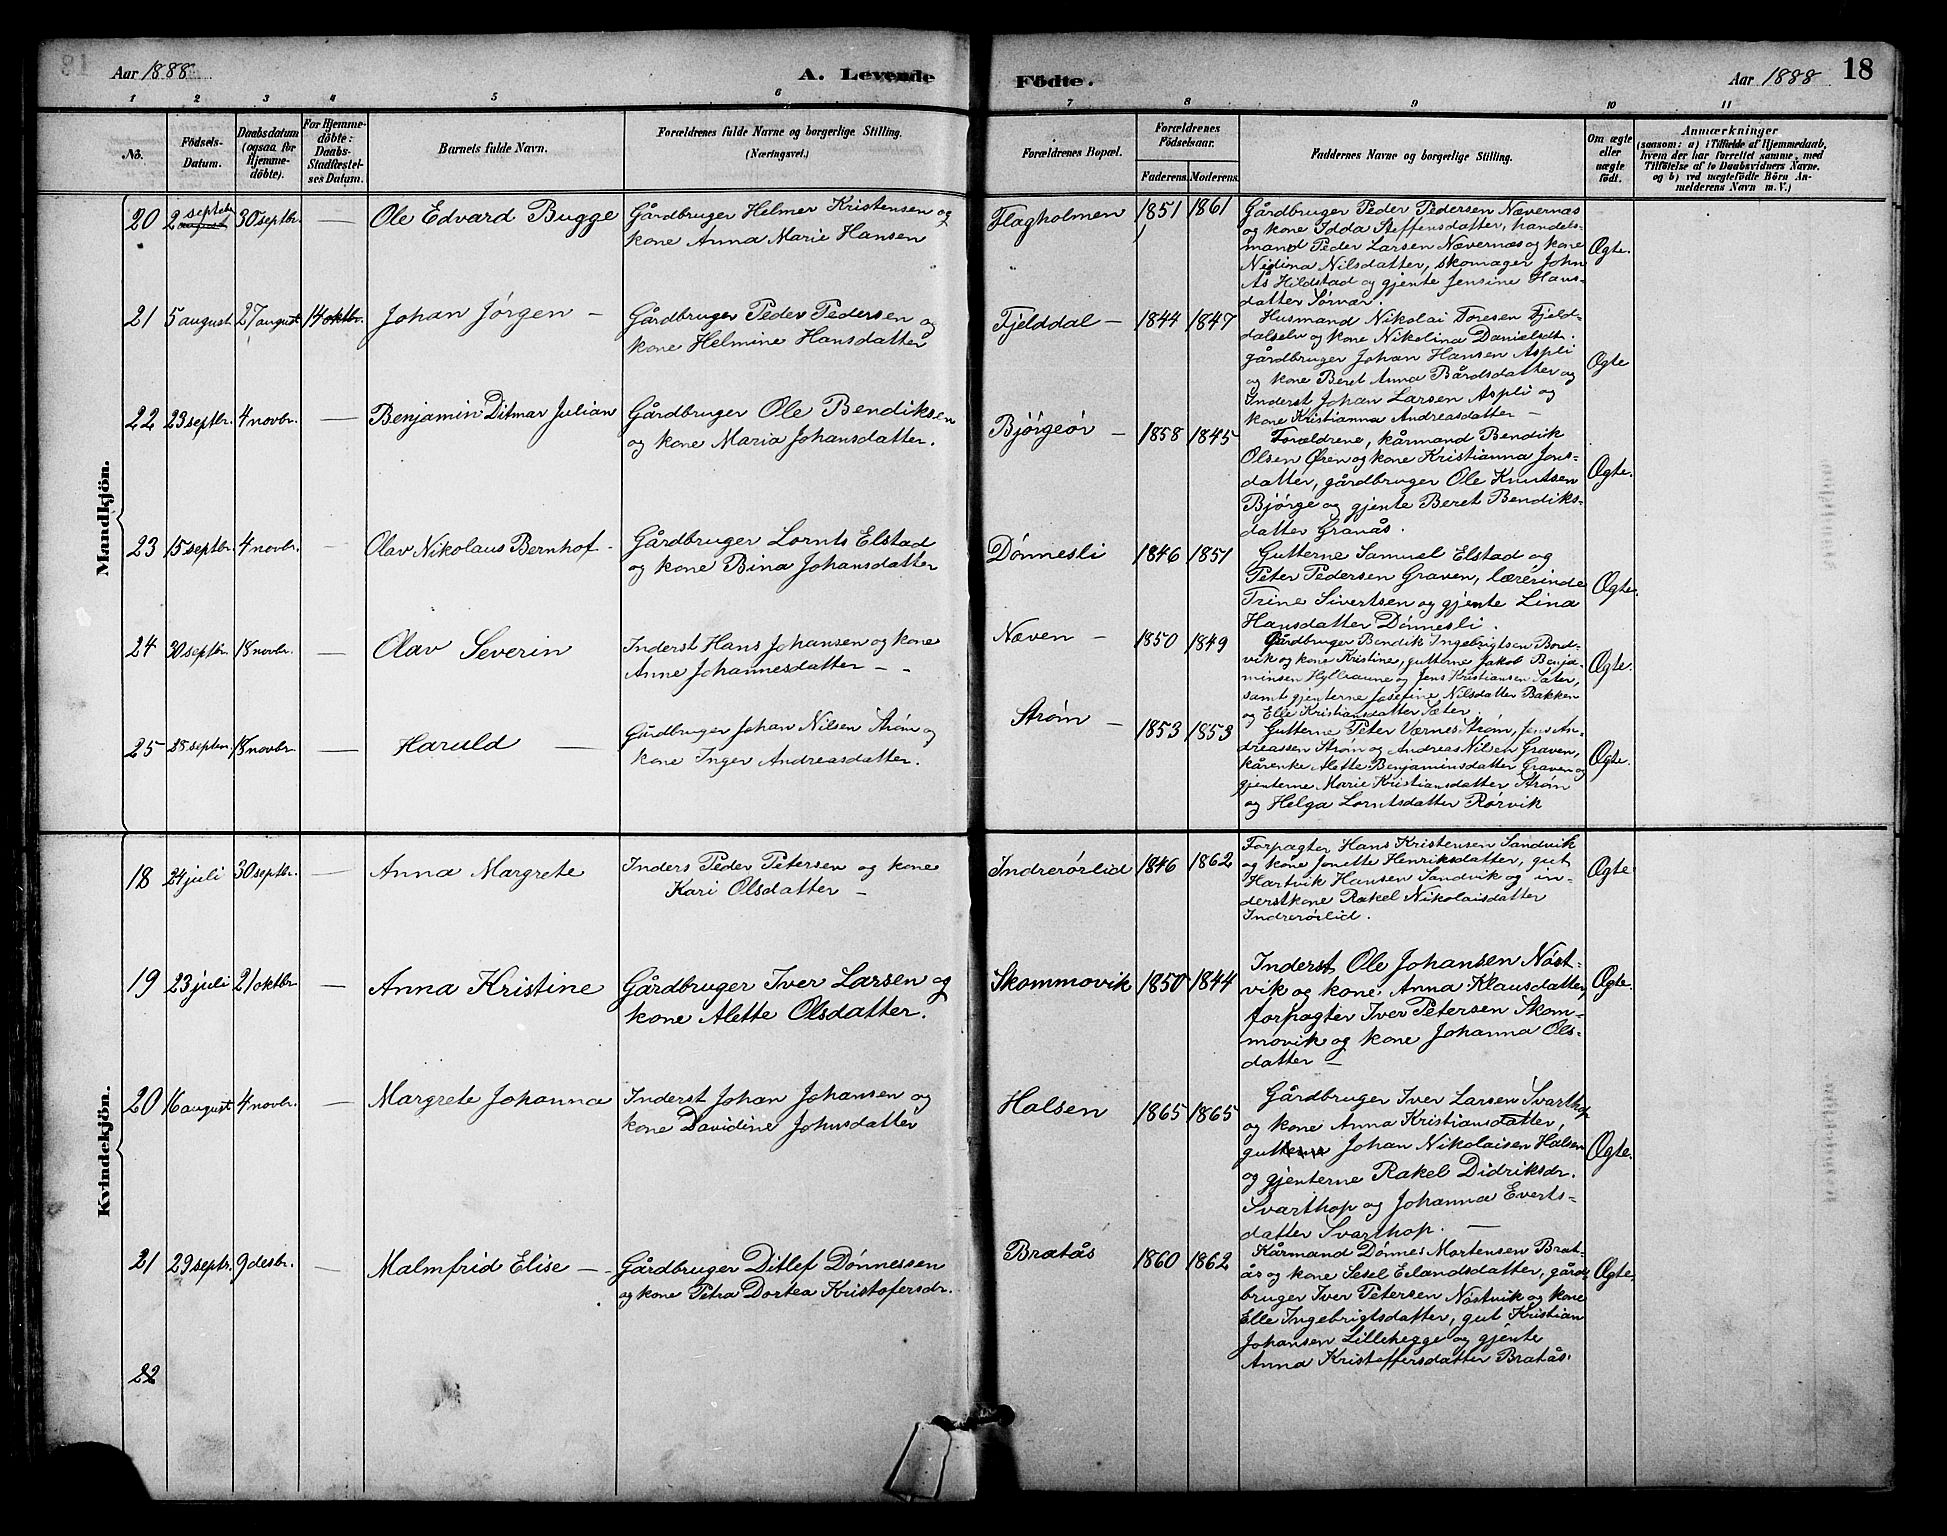 Aar 1888
A. Levende
Födte.
Aar 1888
18
1 2 3 4 5 6 7 8 9 10 11
No.
Födsels-
Datum.
Daabsdatum
(ogsaa for
Hjemme-
döbte).
For Hjemme-
döbte:
Daabs-
Stadfæstel-
ses Datum.
Barnets fulde Navn.
Forældrenes fulde Navne og borgerlige Stilling.
(Næringsvei.)
Forældrenes Bopæl.
Forældrenes
Födselsaar.
Faderens. Moderens.
Faddernes Navne og borgerlige Stilling.
Om ægte
eller
uægte
födt.
Anmærkninger
(saasom: a) i Tilfælde af Hjemmedaab,
hvem der har forrettet samme, med
Tilföielse af to Daabsvidners Navne,
og b) ved uægtefödte Börn An-
melderens Navn m. V.)
Mandkjön.
20 2 septbr august 30 septbr. — Ole Edvard Bugge
Gårdbruger Helmer Kristensen og
kone Anna Marie Hansen
Flagholmen 1851 1861
Gårdbruger Peder Pedersen Nævernæs
og kone Idda Steffensdatter, handels-
mand Peder Larsen Nævernæs og kone
Nidina Nilsdatter, skomager John
Ås Hildstad og gjente Jensine Hans-
datter Sørvær.
Ægte.
21 5 august 27 august 14 oktbr. Johan Jørgen —
Gårdbruger Peder Pedersen og
kone Helmine Hansdatter
Fjelddal — 1844 1847
Husmand Nikolai Toresen Fjeld-
dalselv og kone Nikolina Danielsdtr.
gårdbruger Johan Hansen Aspli
og kone Beret Anna Bårdsdatter og
Inderst Johan Larsen Aspli og
kone Kristianna Andreasdatter —
Ægte
22 23 septbr. 4 novbr. — Benjamin Ditmar Julian
Gårdbruger Ole Bendiksen
og kone Maria Johansdatter.
Bjørgeør — 1858 1845
Forældrene, kårmand Bendik
Olsen Øren og kone Kristianna Jons-
datter, gårdbruger Ole Knutsen
Bjørge og gjente Beret Bendiks-
datter Granås.
Ægte.
23 15 septbr. 4 novbr. — Olav Nikolaus Bernhof —
Gårdbruger Lornts Elstad
og kone Bina Johansdatter
Dønnesli 1846 1851
Gutterne Samuel Elstad og
Peter Pedersen Graven, lærerinde
Trine Sivertsen og gjente Lina
Hansdatter Dønnesli.
Ægte.
24 30 septbr. 18 novbr. — Olav Severin
Inderst Hans Johansen og kone
Anne Johannesdatter — -
Næven — 1850 1849
Gårdbruger Bendik Ingebrigtsen Bord-
vik og kone Kristine, gutterne Jakob Benja-
minsen Hyllraune og Jens Kristiansen Sæter,
samt gjenterne Josefine Nilsdatter Bakken
og Elle Kristiansdatter Sæter.
Ægte.
25 28 septbr. 18 novbr. — Harald —
Gårdbruger Johan Nilsen Strøm og
kone Inger Andreasdatter.
Strøm — 1853 1853
Gutterne Peter Værnes Strøm, Jens An-
dreassen Strøm og Andreas Nilsen Graven,
kårenke Alette Benjaminsdatter Graven og
gjenterne Marie Kristiansdatter Strøm
og Helga Lorntsdatter Rørvik
Ægte.
Kvindekjön.
18 24 juli 30 septbr. — Anna Margrete
Inders Peder Petersen og kone
Kari Olsdatter —
Indrerørlid 1846 1862
Forpagter Hans Kristensen Sandvik
og kone Jonette Henriksdatter, gut
Hartvik Hansen Sandvik og in-
derstkone Rakel Nikolaisdatter
Indrerørlid.
Ægte
19 23 juli 21 oktbr — Anna Kristine
Gårdbruger Iver Larsen og
kone Alette Olsdatter.
Skommovik 1850 1844
Inderst Ole Johansen Nøst-
vik og kone Anna Klausdatter,
forpagter Iver Petersen Skom-
movik og kone Johanna Ols-
datter —
Ægte.
20 16 august 4 novbr. — Margrete Johanna
Inderst Johan Johansen og
kone Davidine Johnsdatter
Halsen 1865 1865
Gårdbruger Iver Larsen Svarthop
og kone Anna Kristiansdatter,
gutterne Johan Nikolaisen Halsen
og gjenterne Rakel Didriksdr.
Svarthop og Johanna Everts-
datter Svarthop. —
Ægte.
21 29 septr. 9 desbr. — Malmfrid Elise —
Gårdbruger Ditlef Dønnessen
og kone Petra Dortea Kristofersdr.
Bratås 1860 1862
Kårmand Dønnes Mortensen Brat-
ås og kone Sesel Erlandsdatter, gård-
bruger Iver Petersen Nøstvik og kone
Elle Ingebrigtsdatter, gut Kristian
Johansen Lillehegge og gjente
Anna Kristoffersdatter Bratås.
Ægte.
22